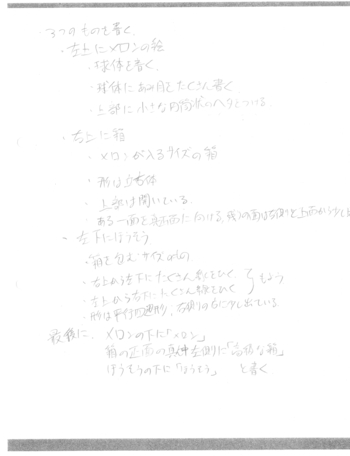 3つのものを書く.
・左上にメロンの絵
・球体を書く.
・球体にあみ目をたくさん書く.
・上部に小さな円筒状のヘタをつける.
・右上に箱
・メロンが入るサイズの箱
・形は直方体
・上部は開いている.
・ある一面を正面にむける,残りの面は右側と上面から少し
・左下にほうそう
・箱を包むサイズのもの
・右上から左下にたくさん線をひく
・左上から右下にたくさん線をひく } もよう
・形は平行四辺形, 右側の方に少し出ている.
最後に, メロンの下に「メロン」
箱の正面の真中左側に「高級な箱」
ほうそうの下に「ほうそう」 と書く